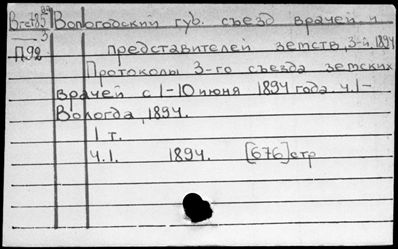 Вологодский губ. съезд врачей и
П92 представителей земств, 3-й, 1894
Протоколы 3-го съезда земских
врачей с 1-10 июня 1894 года. ч.1-
Вологда, 1894.
1 т.
ч.1. 1894. [676] стр